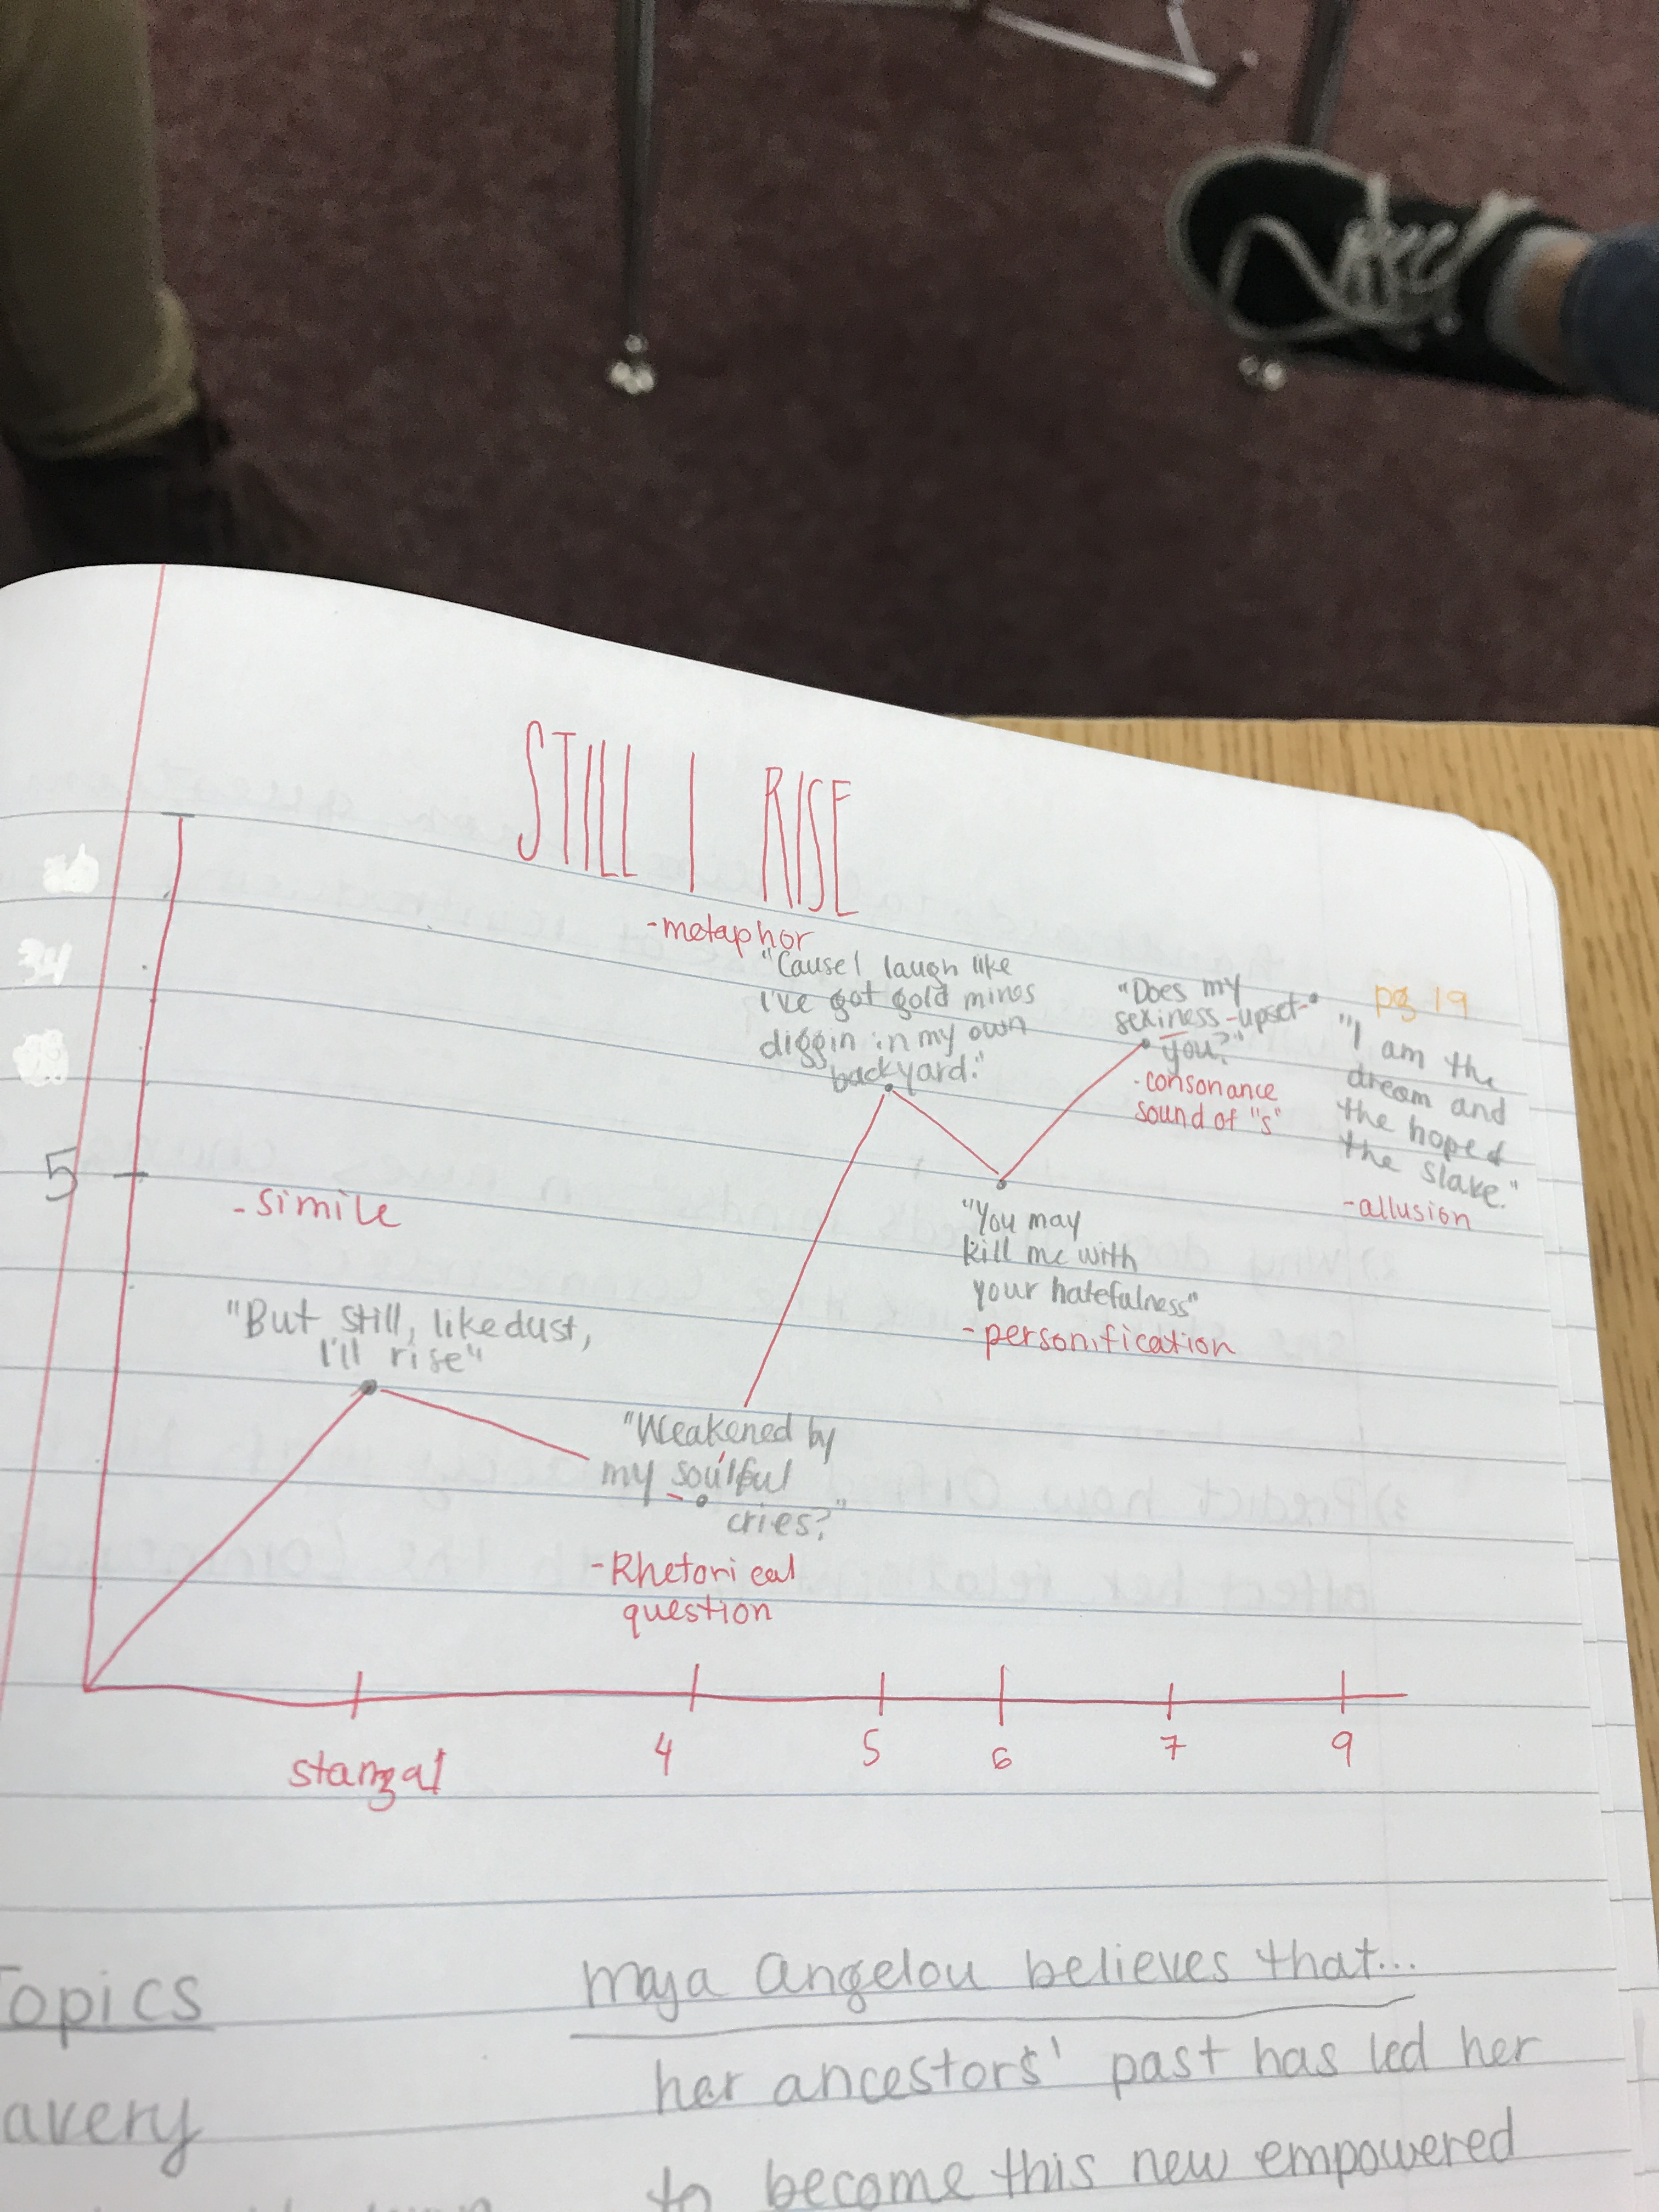 STILL I RISE
-metaphor
"Cause I laugh like
I've got gold mines
diggin in my own
backyard."
"Does my
sexiness -upset-
you?"
-consonance
sound of "s"
pg 19
"I am the
dream and
the hope of
the slave."
-allusion
34
5
-simile
"You may
kill me with
your hatefulness"
-personification
"But still, like dust,
I'll rise"
"Weakened by
my soulful
cries?"
-Rhetorical
question
stanza 1
4
5
6
7
9
Topics
avery
maya angelou believes that...
her ancestors' past has led her
to become this new empowered